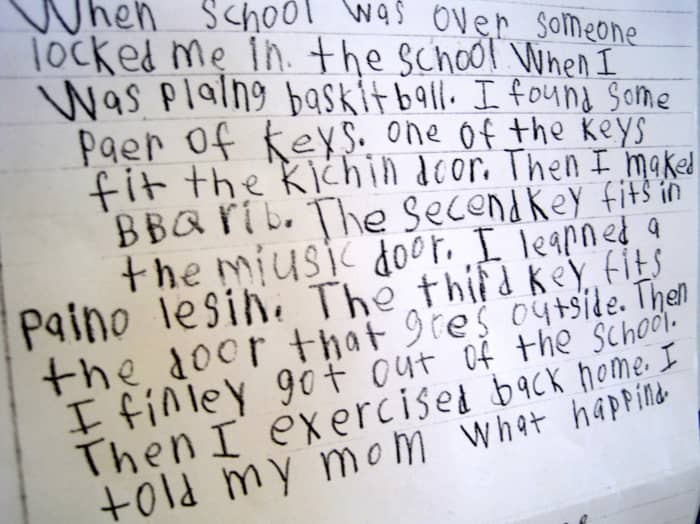 When School was over someone
locked me in. the school When I
Was plaing baskitball. I found Some
paer of keys. one of the keys
fit the kichin door. Then I maked
BBQ rib. The SecendKey fits in
the miusic door. I leanned a
paino lesin. The third key fits
the door that goes outside. Then
I finley got out of the School.
Then I exercised back home. I
told my mom what happind.